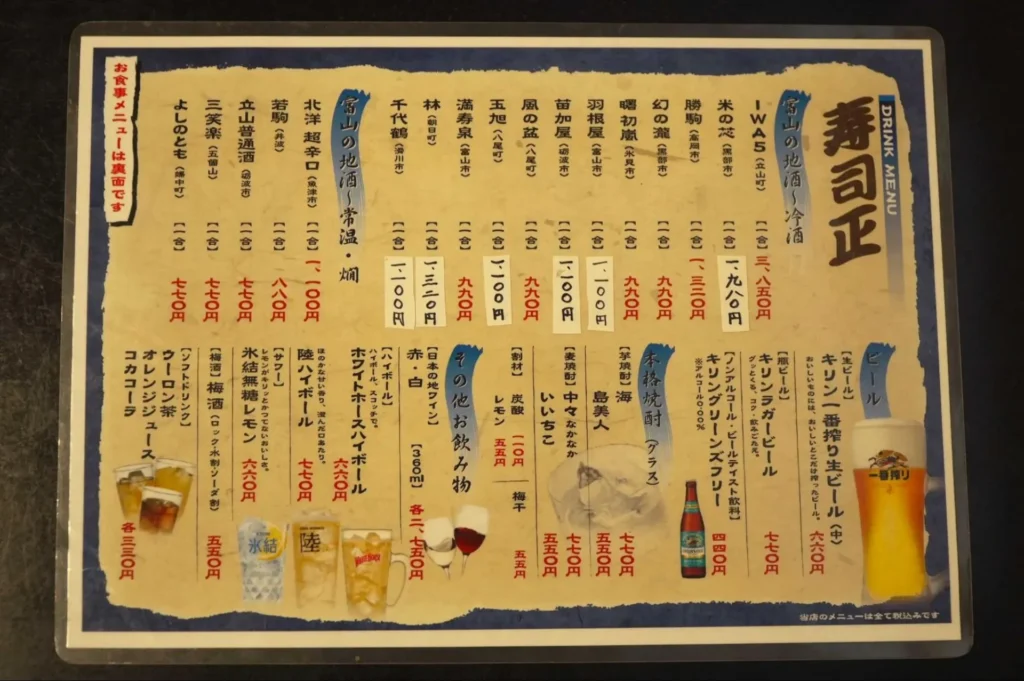 DRINK MENU
寿司正
富山の地酒～冷酒
IWA5（立山町）【一合】三、八五〇円
米の芯（黒部市）【一合】一、九八〇円
勝駒（高岡市）【一合】一、三二〇円
幻の瀧（黒部市）【一合】九九〇円
曙初嵐（氷見市）【一合】九九〇円
羽根屋（富山市）【一合】一、一〇〇円
苗加屋（砺波市）【一合】一、一〇〇円
風の盆（八尾町）【一合】九九〇円
玉旭（八尾町）【一合】一、一〇〇円
満寿泉（富山市）【一合】九九〇円
林（朝日町）【一合】一、三二〇円
千代鶴（滑川市）【一合】一、一〇〇円
富山の地酒～常温・燗
北洋 超辛口（魚津市）【一合】一、一〇〇円
若駒（井波）【一合】八八〇円
立山普通酒（砺波市）【一合】七七〇円
三笑楽（五箇山）【一合】七七〇円
よしのとも（婦中町）【一合】七七〇円
お食事メニューは裏面です
ビール
【生ビール】
キリン一番搾り生ビール（中）六六〇円
おいしいものには、おいしいとこだけ搾ったビール。
【瓶ビール】
キリンラガービール 七七〇円
グッとくる、コク・飲みごたえ。
【ノンアルコール・ビールテイスト飲料】
キリングリーンズフリー 四四〇円
※アルコール0.00%
本格焼酎（グラス）
【芋焼酎】海 七七〇円
島美人 五五〇円
【麦焼酎】中々なかなか 七七〇円
いいちこ 五五〇円
【割材】炭酸 一一〇円 梅干 五五円
レモン 五五円
その他お飲み物
【日本の地ワイン】
赤・白【360ml】各二、七五〇円
【ハイボール】
ハイボール、スコッチで。
ホワイトホースハイボール 六六〇円
陸ハイボール 七七〇円
ほのかな甘い香り、澄んだ口あたり。
【サワー】
レモンがキリッとかつてないおいしさ。
氷結無糖レモン 六六〇円
【梅酒】梅酒（ロック・水割・ソーダ割）五五〇円
【ソフトドリンク】
ウーロン茶
オレンジジュース
コカコーラ 各三三〇円
一番搾り
氷結
陸
当店のメニューは全て税込みです